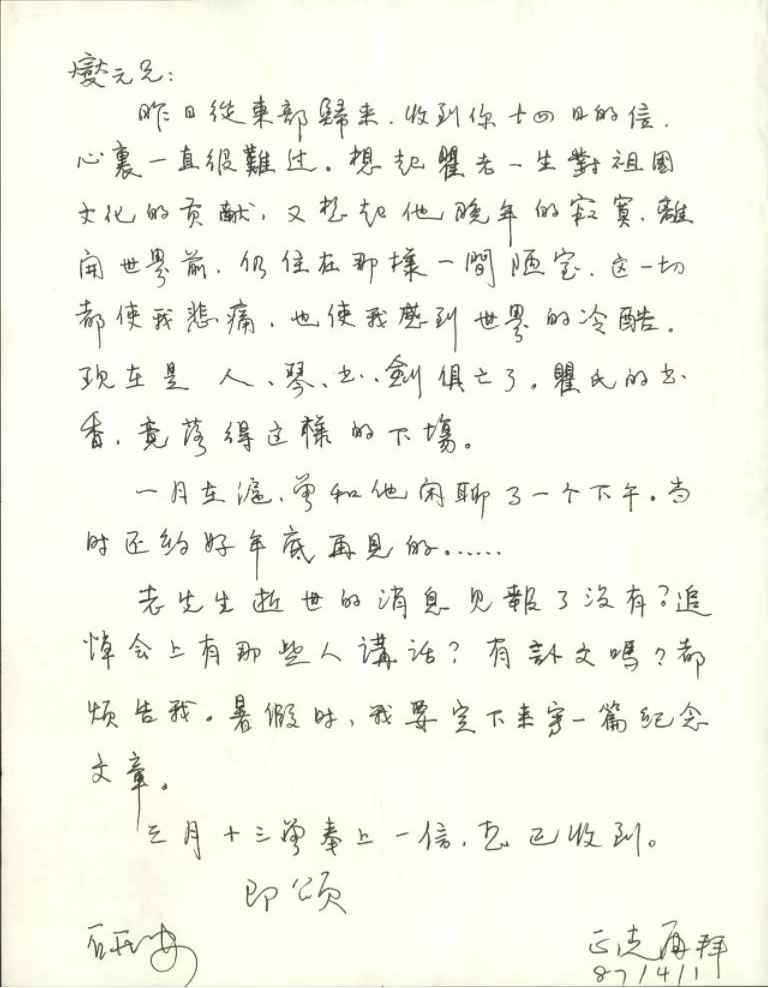 燮元兄：
昨日從東部歸来，收到你十四日的信，
心裏一直很難过。想起瞿老一生對祖國
文化的贡献，又想起他晚年的寂寞，離
開世界前，仍住在那樣一間陋室，这一切
都使我悲痛，也使我感到世界的冷酷。
现在是人、琴、书、劍俱亡了。瞿氏的书
香，竟落得这樣的下場。
一月在滬，曾和他闲聊了一个下午。当
时还约好年底再見的。……
老先生逝世的消息見報了没有？追
悼会上有那些人講話？有訃文嗎？都
烦告我。暑假时，我要定下来写一篇纪念
文章。
三月十三曾奉上一信，想已收到。
即頌
研安
正浩再拜
87/4/1